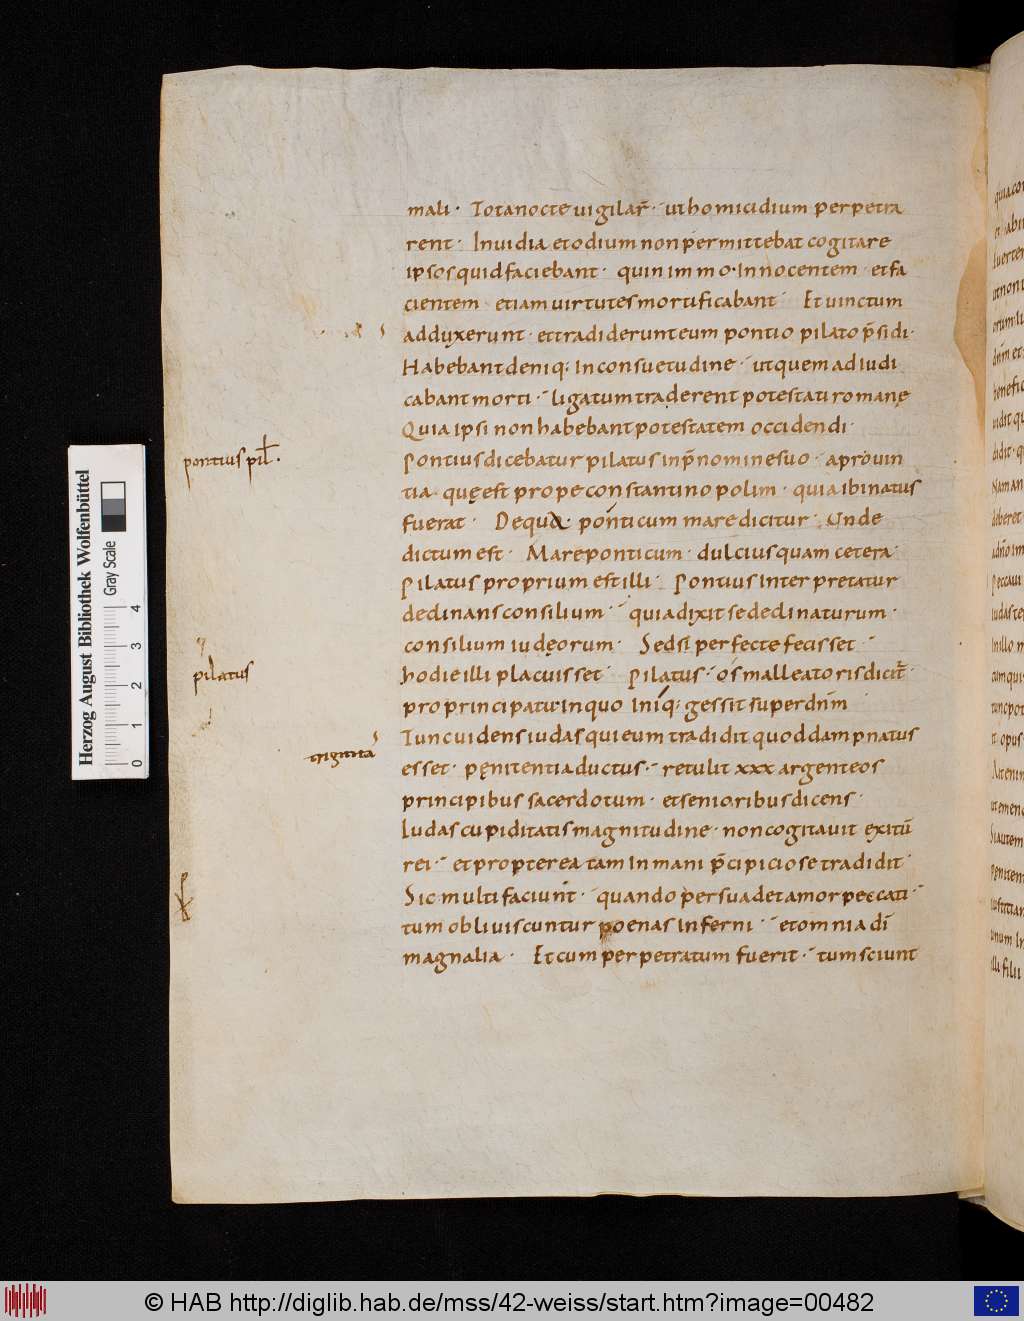 mali · Tota nocte uigilar̄ · ut homicidium perpetra
rent · Inuidia et odium non permittebat cogitare
ipsos quid faciebant · quin immo · Innocentem et fa
cientem etiam uirtutes mortificabant Et uinctum
adduxerunt · et tradiderunt eum pontio pilato p̄sidi ·
Habebant deniq; in consuetudine · ut quem adiudi
cabant morti · ligatum traderent potestati romanę
Quia ipsi non habebant potestatem occidendi ·
pontius pił ·
Pontius dicebatur pilatus in p̄nomine suo · a prouin
tia quę est prope constantinopolim · quia ibi natus
fuerat · De qua ponticum mare dicitur · Unde
dictum est · Mare ponticum · dulcius quam cetera ·
Pilatus proprium est illi · Pontius Interpretatur
declinans consilium · quia dixit se declinaturum ·
consilium iudęorum · Sed si perfecte fecisset ·
pilatus
hodie illi placuisset · Pilatus · os malleatoris dicit̄
pro principatu · In quo iniq; gessit super dn̄m
Tunc uidens iudas qui eum tradidit quod dampnatus
triginta
esset · pęnitentia ductus · retulit xxx argenteos
principibus sacerdotum · et senioribus dicens ·
Iudas cupiditatis magnitudine · non cogitauit exitū
rei · et propterea tam In mani p̄cipicio se tradidit ·
Sic multi faciunt · quando persuadet amor peccati ·
tum obliuiscuntur poenas Inferni · et omnia dī
magnalia · Et cum perpetratum fuerit · tum sciunt
Herzog August Bibliothek Wolfenbüttel
Gray Scale
0 1 2 3 4
© HAB http://diglib.hab.de/mss/42-weiss/start.htm?image=00482